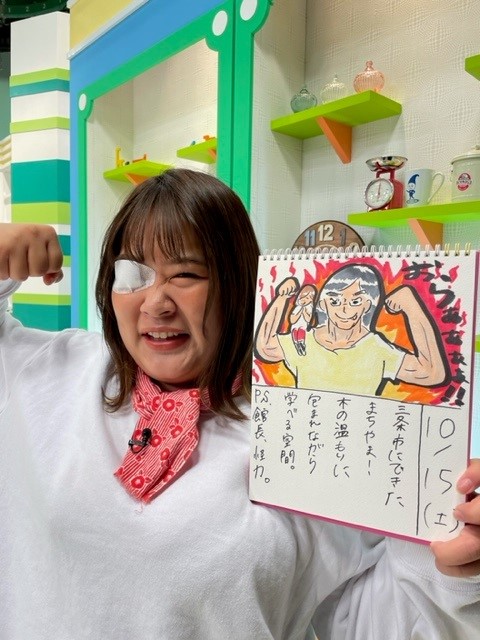 10/15(土)
三条市にできた
まちやま!
木の温もりに
包まれながら
学べる空間。
P.S.館長、怪力。
12